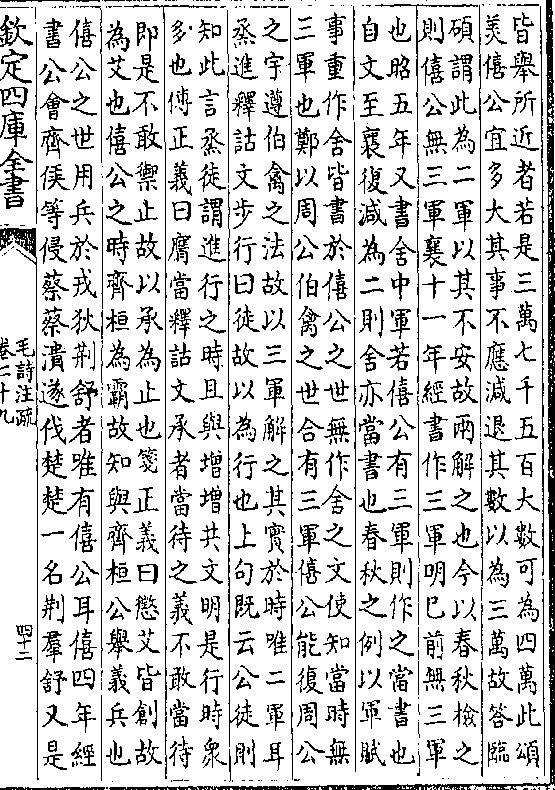 皆舉所近者若是三萬七千五百大數可為四萬此頌
美僖公宜多大其事不應減退其數以為三萬故答臨
碩謂此為二軍以其不安故兩解之也今以春秋檢之
則僖公無三軍襄十一年經書作三軍明已前無三軍
也昭五年又書舍中軍若僖公有三軍則作之當書也
自文至襄復減為二則舍亦當書也春秋之例以軍賦
事重作舍皆書於僖公之世無作舍之文便知當時無
三軍也鄭以周公伯禽之世合有三軍僖公能復周公
之宇遵伯禽之法故以三軍解之其實於時唯二軍耳
烝進釋詁文步行曰徒故以為行也上句既云公徒則
知此言烝徒謂進行之時且與增增共文明是行時衆
多也傳正義曰膺當釋詁文承者當待之義不敢當待
即是不敢禦止故以承為止也箋正義曰懲艾皆創故
為艾也僖公之時齊桓為霸故知與齊桓公舉義兵也
僖公之世用兵於戎狄荆舒者唯有僖公耳僖四年經
書公會齊侯等侵蔡蔡潰遂伐楚楚一名荆羣舒又是
欽定四庫全書
毛詩注疏
卷二十九
四十二